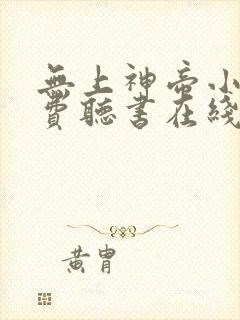 無上神帝小
費聽書在綫
黃胄